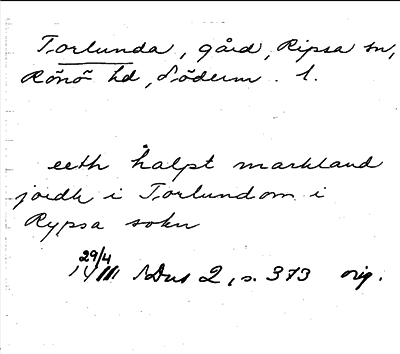 Torlunda, gård, Ripsa sn,
Rönö hd, Söderm. l.
eeth halpt markland
jordh i Torlundom i
Rypsa sokn
29/4
SDns 2, s. 373 orig.